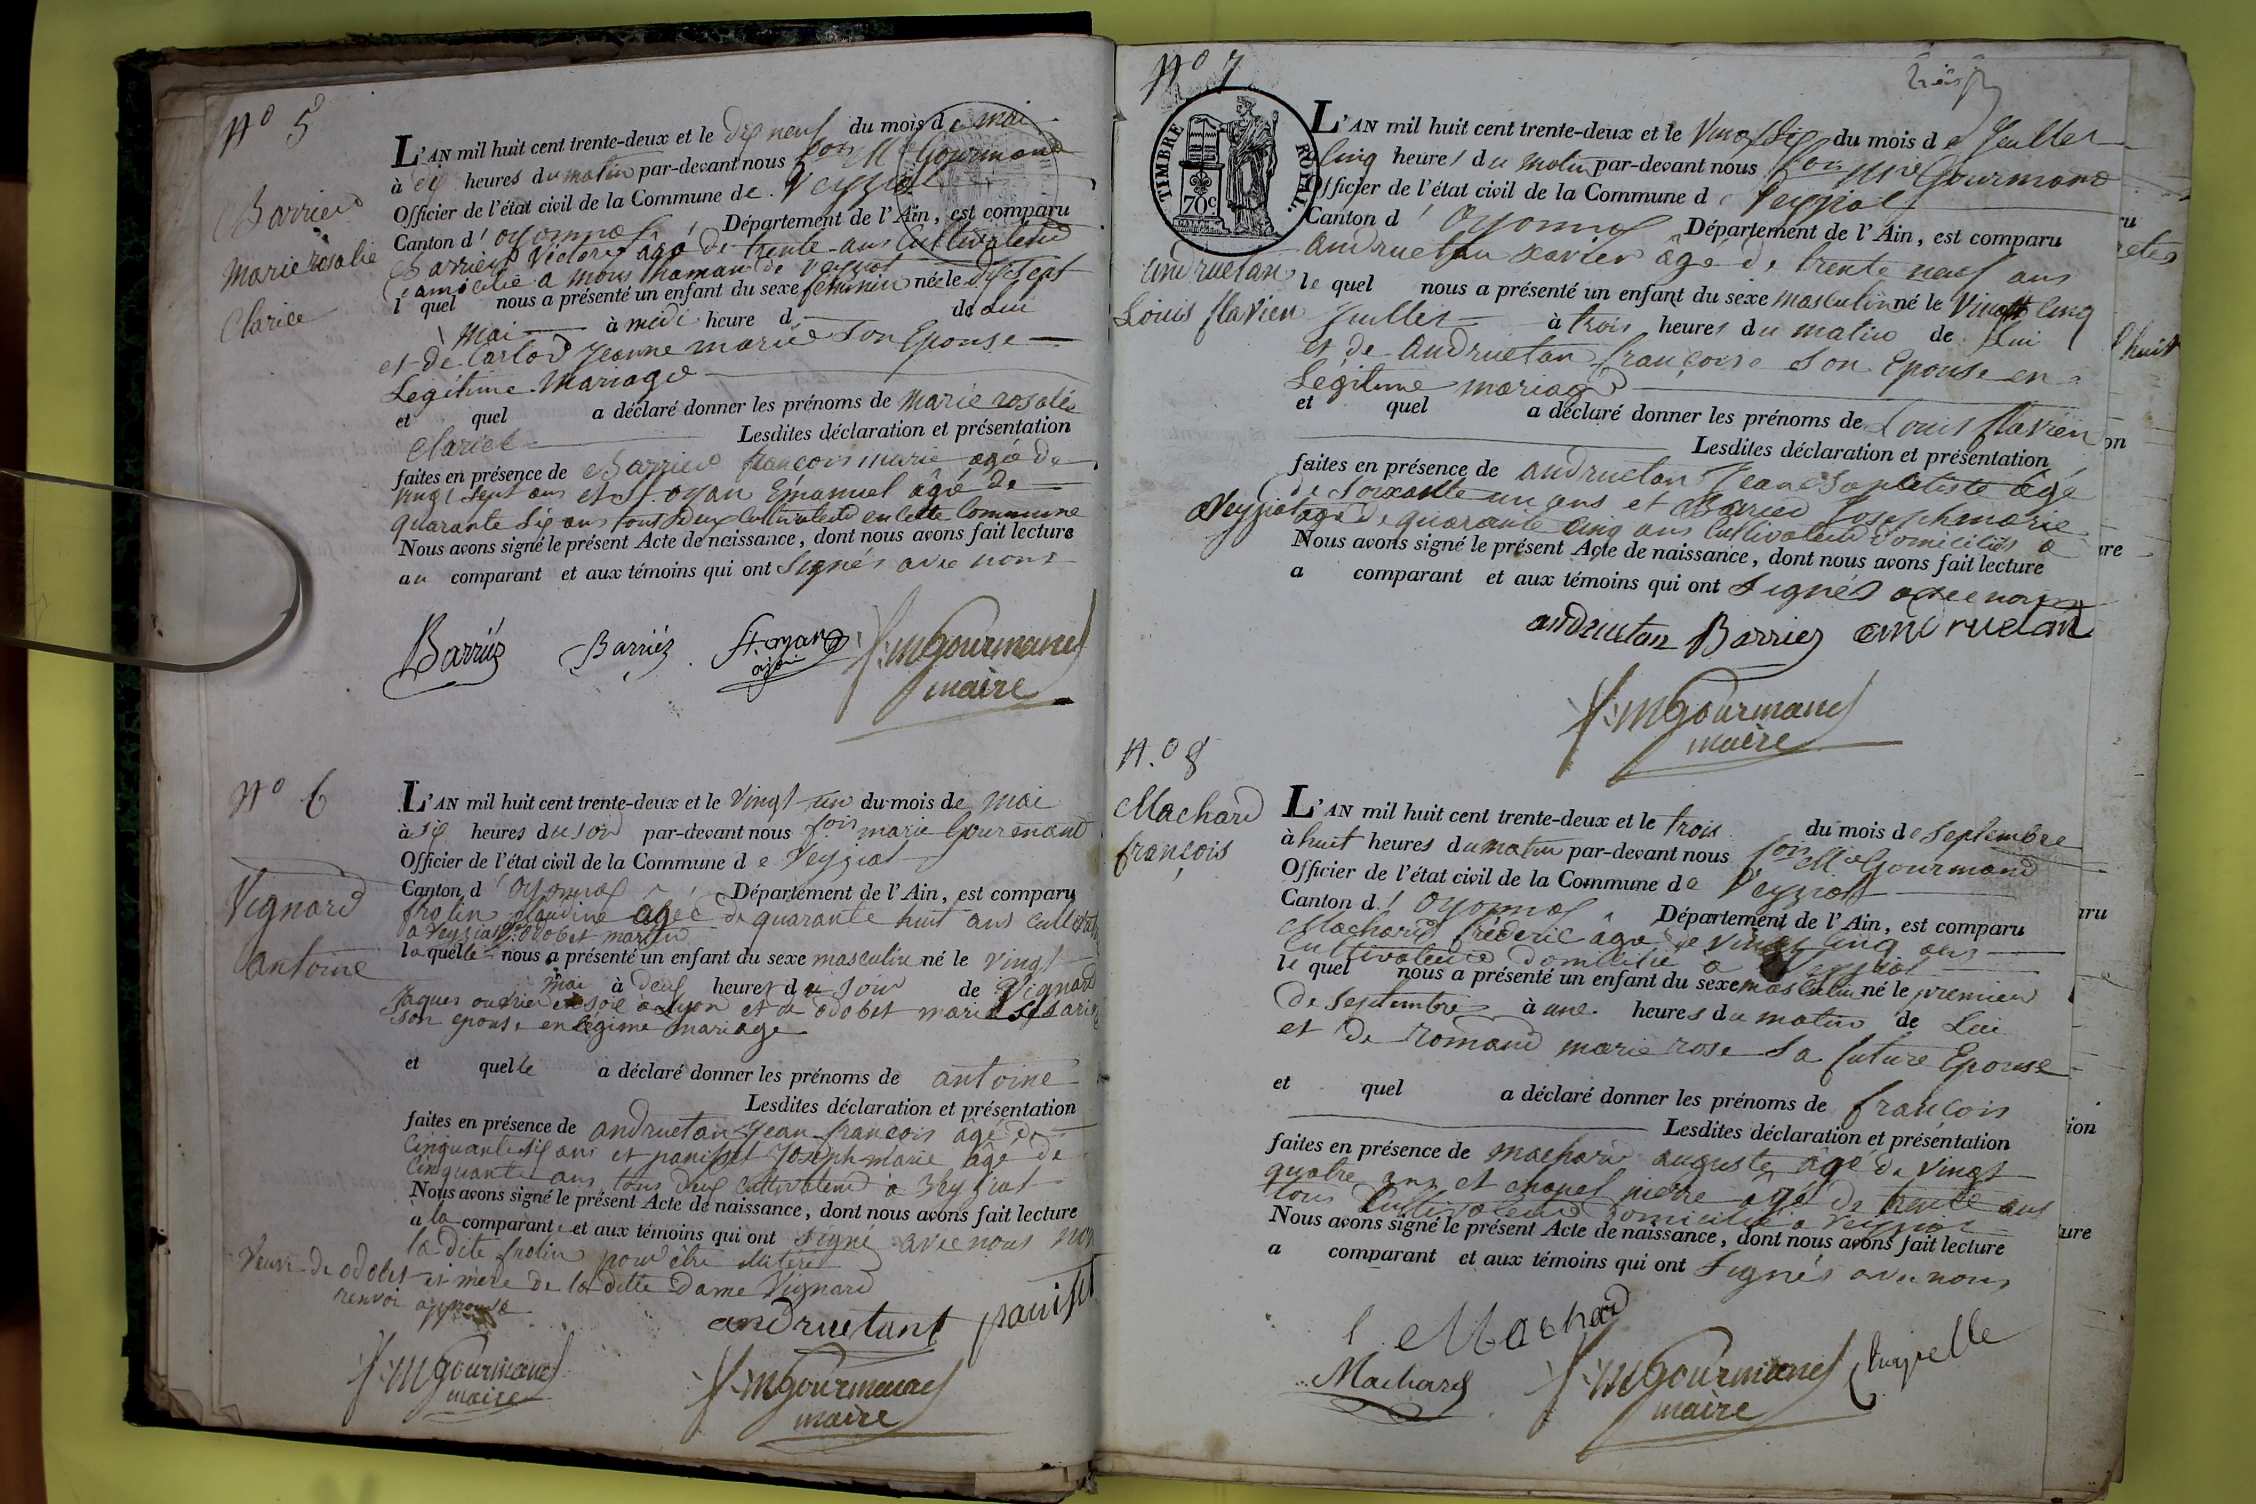 N° 5
Barrier
Marie rosalie
Clarice
L'AN mil huit cent trente-deux et le dix neuf du mois de mai
à dix heures du matin par-devant nous fois M Gourmand
Officier de l'état civil de la Commune de Veyziat
Canton d'oyonnax Département de l'Ain, est comparu
Barrier Victor agé de trente ans Cultivateur
domicilié a mons hameau de Veyziat
lequel nous a présenté un enfant du sexe féminin née le dix sept
Mai à midi heure d de Lui
et de Carlod Jeanne marie Son Epouse
Legitime Mariage
et quel a déclaré donner les prénoms de Marie rosalie
Clarice Lesdites déclaration et présentation
faites en présence de Barrier françois marie agé de
vingt Sept ans et St oyan Emanuel âgé de
quarante Six ans tous deux Cultivateur en cette Commune
Nous avons signé le présent Acte de naissance, dont nous avons fait lecture
au comparant et aux témoins qui ont Signés avec nous
Barriéz Barriéz St. oyan
f. m Gourmand
maire
N° 6
Vignard
antoine
L'AN mil huit cent trente-deux et le Vingt un du mois de mai
à six heures du soir par-devant nous fois marie Gourmand
Officier de l'état civil de la Commune de Veyziat
Canton d'oyonnax Département de l'Ain, est comparu
frolin Claudine agée de quarante huit ans
a Veyziat odobet martin
la quelle nous a présenté un enfant du sexe masculin né le vingt
mai à deux heures du soir de Vignard
Jaques ouvrier en soie a Lyon et de odobet marie
son epouse en légime mariage
et quelle a déclaré donner les prénoms de antoine
Lesdites déclaration et présentation
faites en présence de andruetan Jean françois âgé de
Cinquante six ans et panisset Joseph marie âgé de
Cinquante ans tous deux Cultivateur a Veyziat
Nous avons signé le présent Acte de naissance, dont nous avons fait lecture
a la comparante et aux témoins qui ont signé avec nous non
la dite frolin pour être illitérée
Veuve de odobet et mere de la ditte Dame Vignard
renvoi approuvé
andruetant panisset
f. m Gourmand
maire
f. m Gourmand
maire
N° 7
TIMBRE ROYAL.
70 c
andruetan
Louis flavien
L'AN mil huit cent trente-deux et le Vingt Six du mois de Juillet
Cinq heures du matin par-devant nous fois Mie Gourmand
Officier de l'état civil de la Commune de Veyziat
Canton d'Oyonnax Département de l'Ain, est comparu
andruetan xavier âgé de trente neuf ans
le quel nous a présenté un enfant du sexe masculin né le Vingt Cinq
Juillet à trois heures du matin de Lui
et de andruetan françoise Son Epouse en
Legitime mariage
et quel a déclaré donner les prénoms de Louis flavien
Lesdites déclaration et présentation
faites en présence de andruetan Jean Baptiste âgé
de Soixante un ans et Barier Joseph marie
âgé de quarante Cinq ans Cultivateur domiciliés a
Veyziat
Nous avons signé le présent Acte de naissance, dont nous avons fait lecture
a comparant et aux témoins qui ont Signés avec nous
andruetan Barriez andruetan
f. m Gourmand
maire
N.° 8
Machard
françois
L'AN mil huit cent trente-deux et le trois du mois de Septembre
à huit heures du matin par-devant nous fois Mie Gourmand
Officier de l'état civil de la Commune de Veyziat
Canton d'Oyonnax Département de l'Ain, est comparu
Machard frédéric âgé de vingt Cinq ans
Cultivateur domicilié a Veyziat
le quel nous a présenté un enfant du sexe masculin né le premier
de Septembre à une heures du matin de Lui
et de Romand marie rose Sa future Epouse
et quel a déclaré donner les prénoms de françois
Lesdites déclaration et présentation
faites en présence de machard auguste âgé de Vingt
quatre ans et chapel pierre âgé de trente ans
tous Cultivateur domicilié a Veyziat
Nous avons signé le présent Acte de naissance, dont nous avons fait lecture
a comparant et aux témoins qui ont Signés avec nous
f Machard
Machard
f. m Gourmand
maire
Chapelle